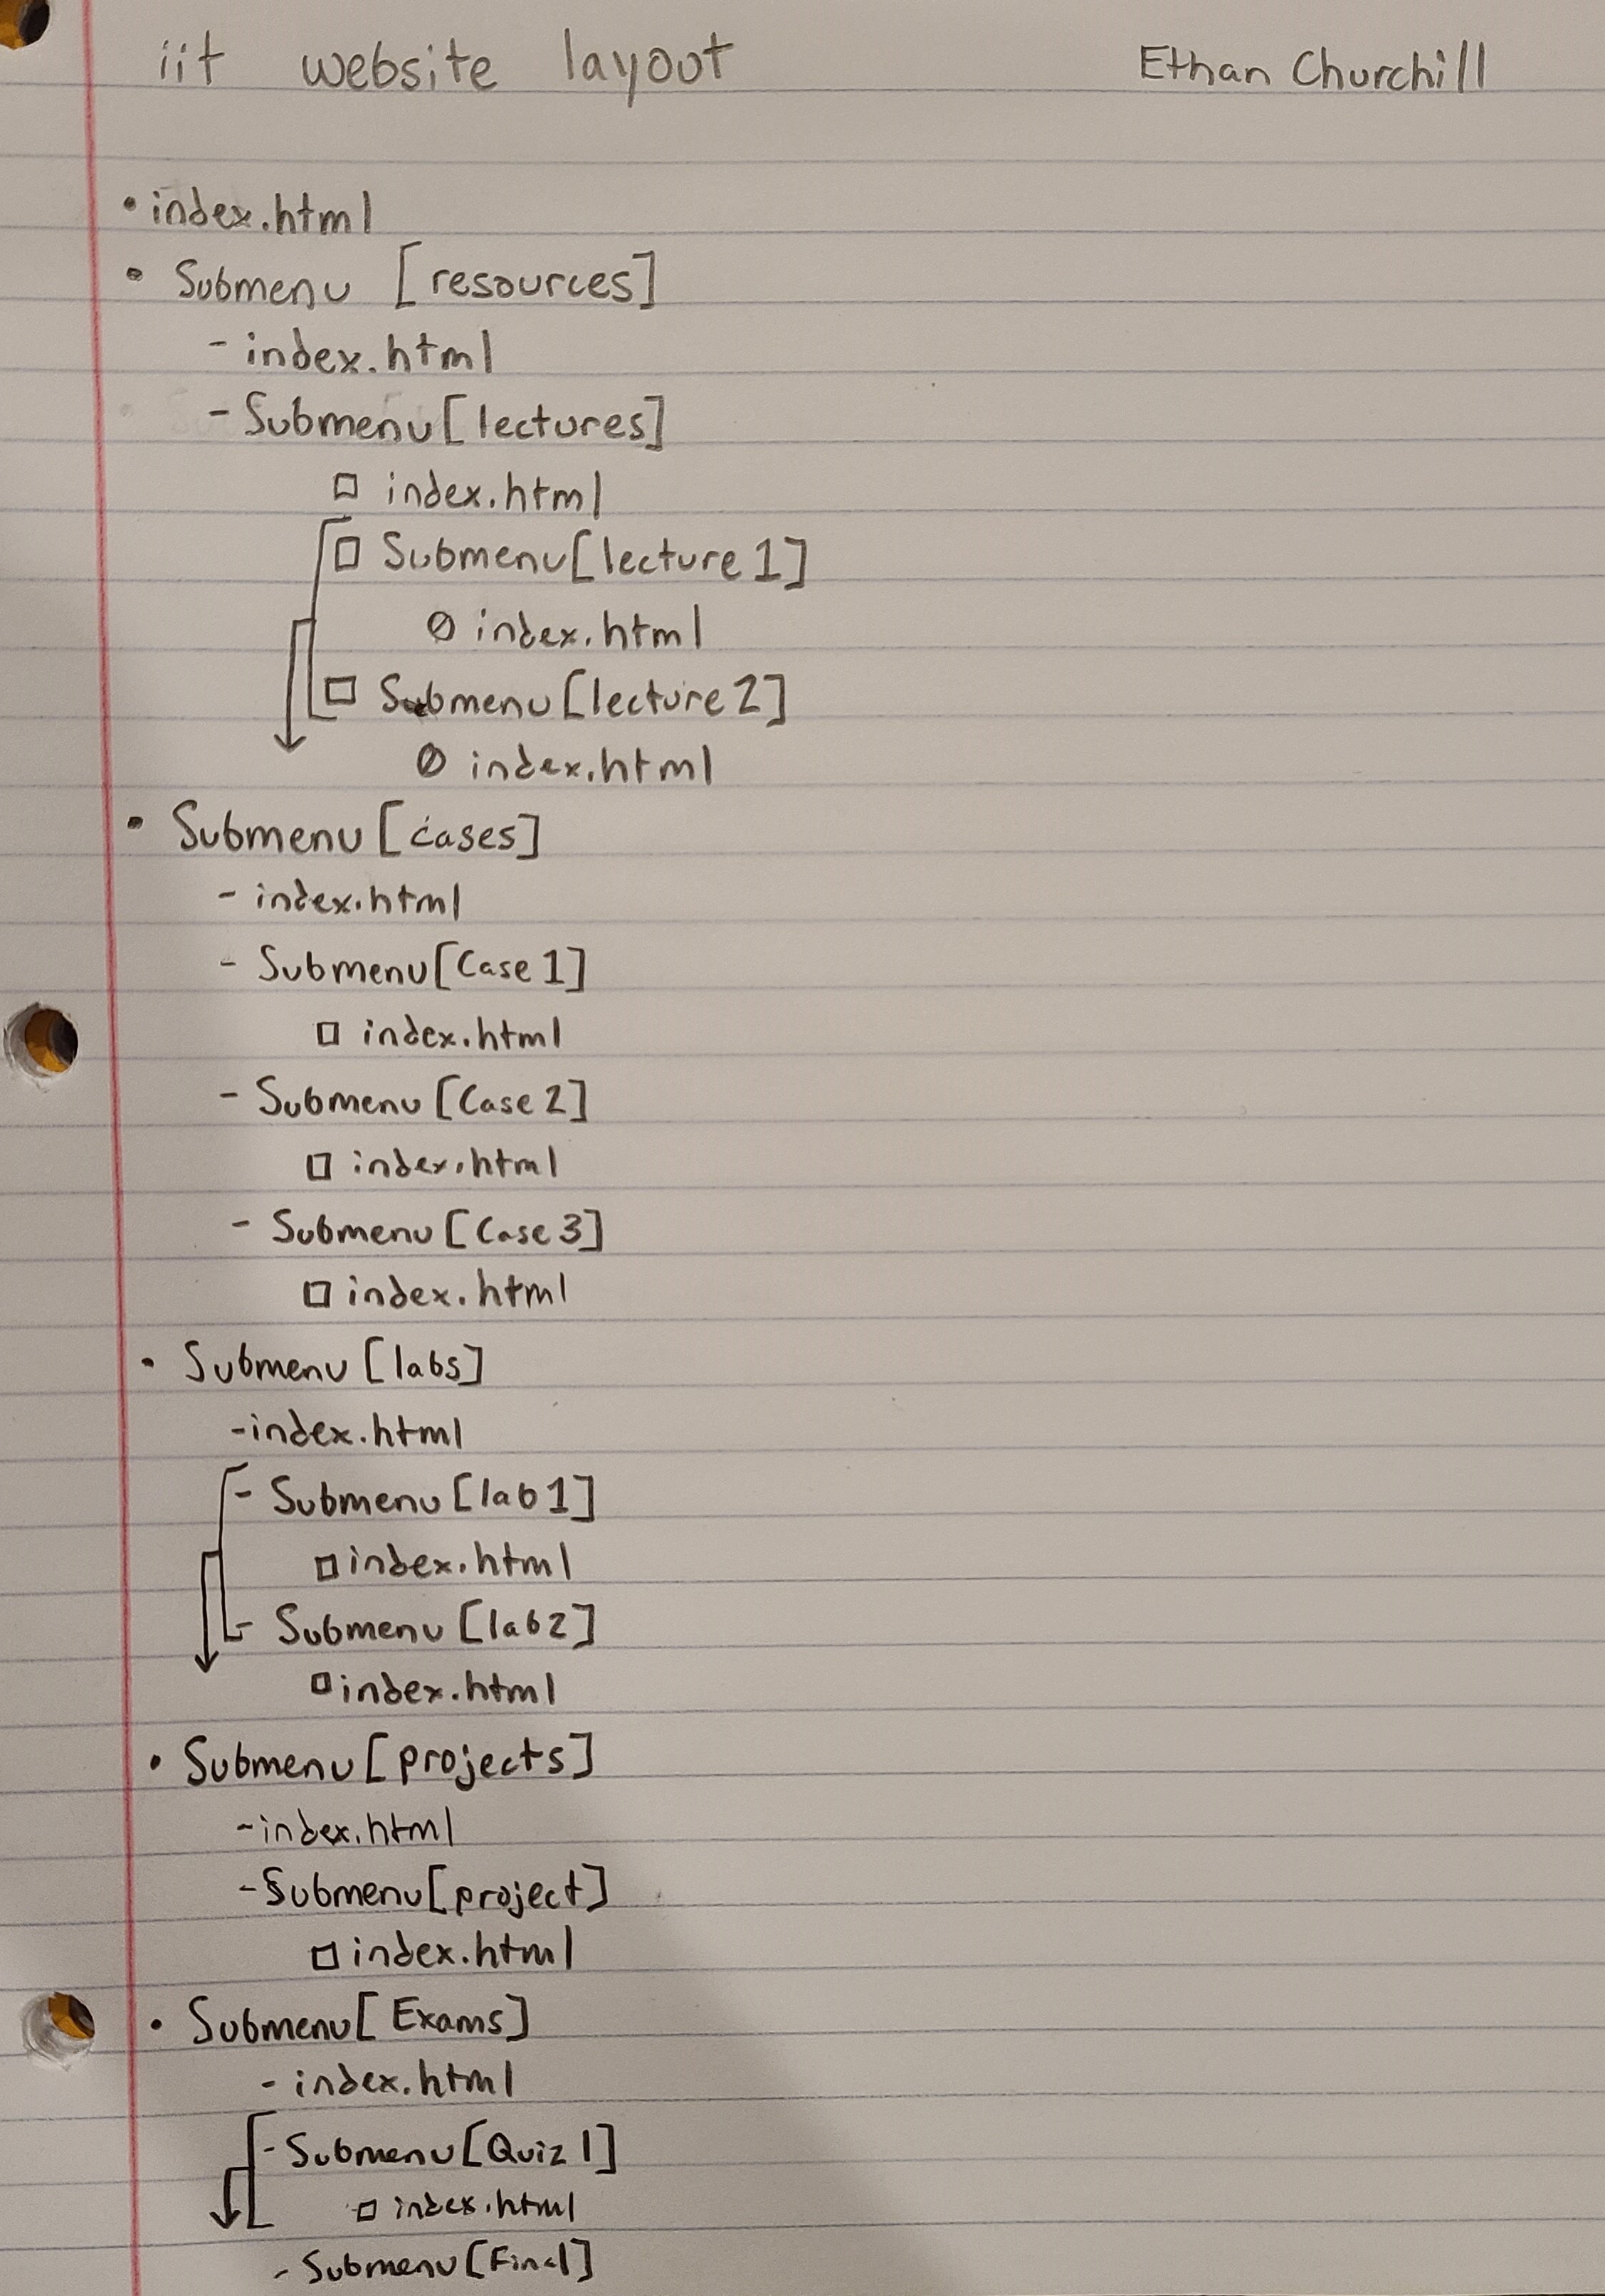 iit website layout Ethan Churchill
• index.html
• Submenu [resources]
- index.html
- Submenu [lectures]
□ index.html
□ Submenu [lecture 1]
∅ index.html
□ Submenu [lecture 2]
∅ index.html
• Submenu [cases]
- index.html
- Submenu [Case 1]
□ index.html
- Submenu [Case 2]
□ index.html
- Submenu [Case 3]
□ index.html
• Submenu [labs]
- index.html
- Submenu [lab 1]
□ index.html
- Submenu [lab 2]
□ index.html
• Submenu [projects]
- index.html
- Submenu [project]
□ index.html
• Submenu [Exams]
- index.html
- Submenu [Quiz 1]
□ index.html
- Submenu [Final]